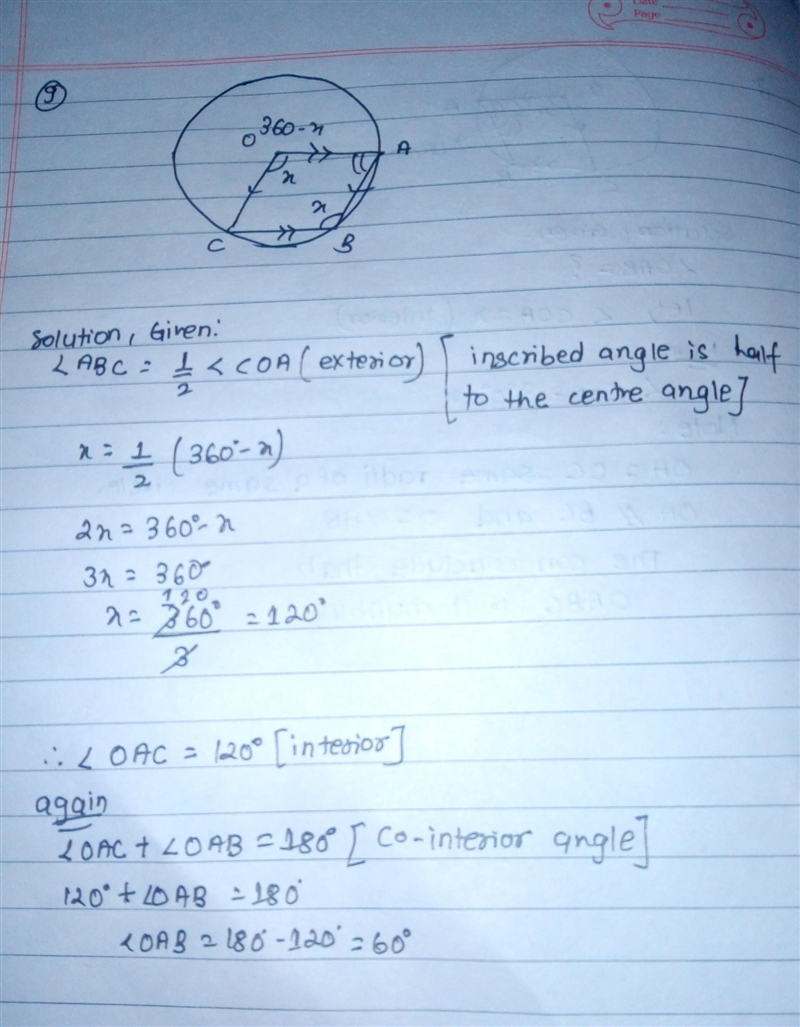 Date
Page
9
O 360-x
A
x
x
C
B
Solution, Given:
∠ABC = 1/2 <COA (exterior) [inscribed angle is half
to the centre angle]
x = 1/2 (360°-x)
2x = 360°-x
3x = 360°
120
x = 360°/3 = 120°
∴ ∠OAC = 120° [interior]
again
∠OAC + ∠OAB = 180° [Co-interior angle]
120° + ∠OAB = 180°
<OAB = 180°-120° = 60°